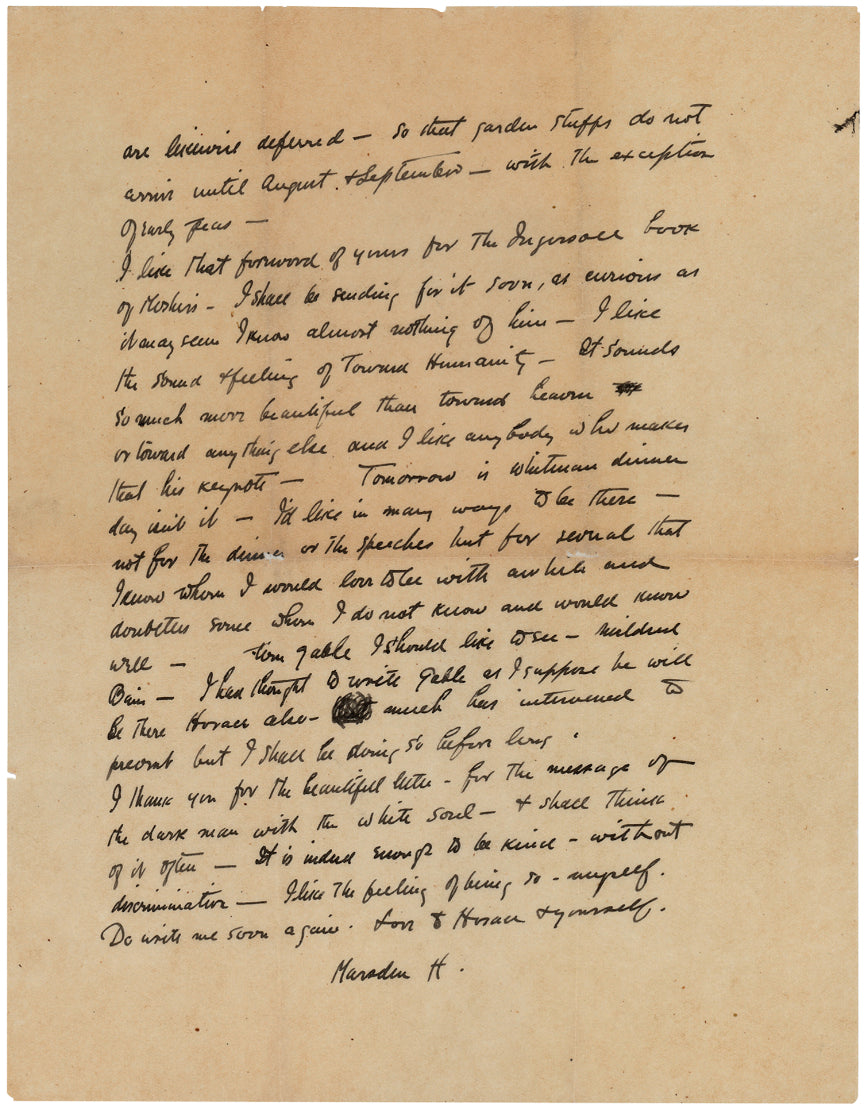 are likewise deferred — so that garden stuffs do not
arrive until August & September — with the exception
of early peas —
I like that forword of yours for the Ingersoll book
of Moshers — I shall be sending for it soon, as curious as
it may seem I know almost nothing of him — I like
the sound & feeling of Toward Humanity — It sounds
so much more beautiful than toward heaven
or toward anything else and I like anybody who makes
that his keynote — Tomorrow is whitman dinner
day isn't it — I'd like in many ways to be there —
not for the dinner or the speeches but for several that
I know whom I would love to be with awhile and
doubtless some whom I do not know and would know
well — Tom Gable I should like to see — Mildred
Bain — I had thought to write Gable as I suppose he will
be there Horace also — much has intervened to
prevent but I shall be doing so before long.
I thank you for the beautiful letter — for the message of
the dark man with the white soul — & shall think
of it often — It is indeed enough to be kind — without
discrimination — I like the feeling of being so — myself.
Do write me soon again. Love to Horace & yourself.
Marsden H.